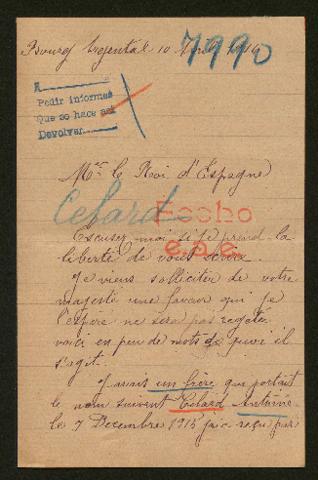 Bourg Argental 10 Avril 1916
7990
A
Pedir informes
Que se hace así
Devolver
Mr. le Roi d'Espagne
Celard
Hecho
Escusez moi si je prend la
liberté de vous écrire
Je viens solliciter de votre
majesté une faveur qui je
l'espère ne sera pas rejetée
voici en peu de mots de quoi il
s'agit.
J'avais un frère qui portait
le nom suivant Celard Antoine
le 7 Decembre 1915 j'ai reçu par